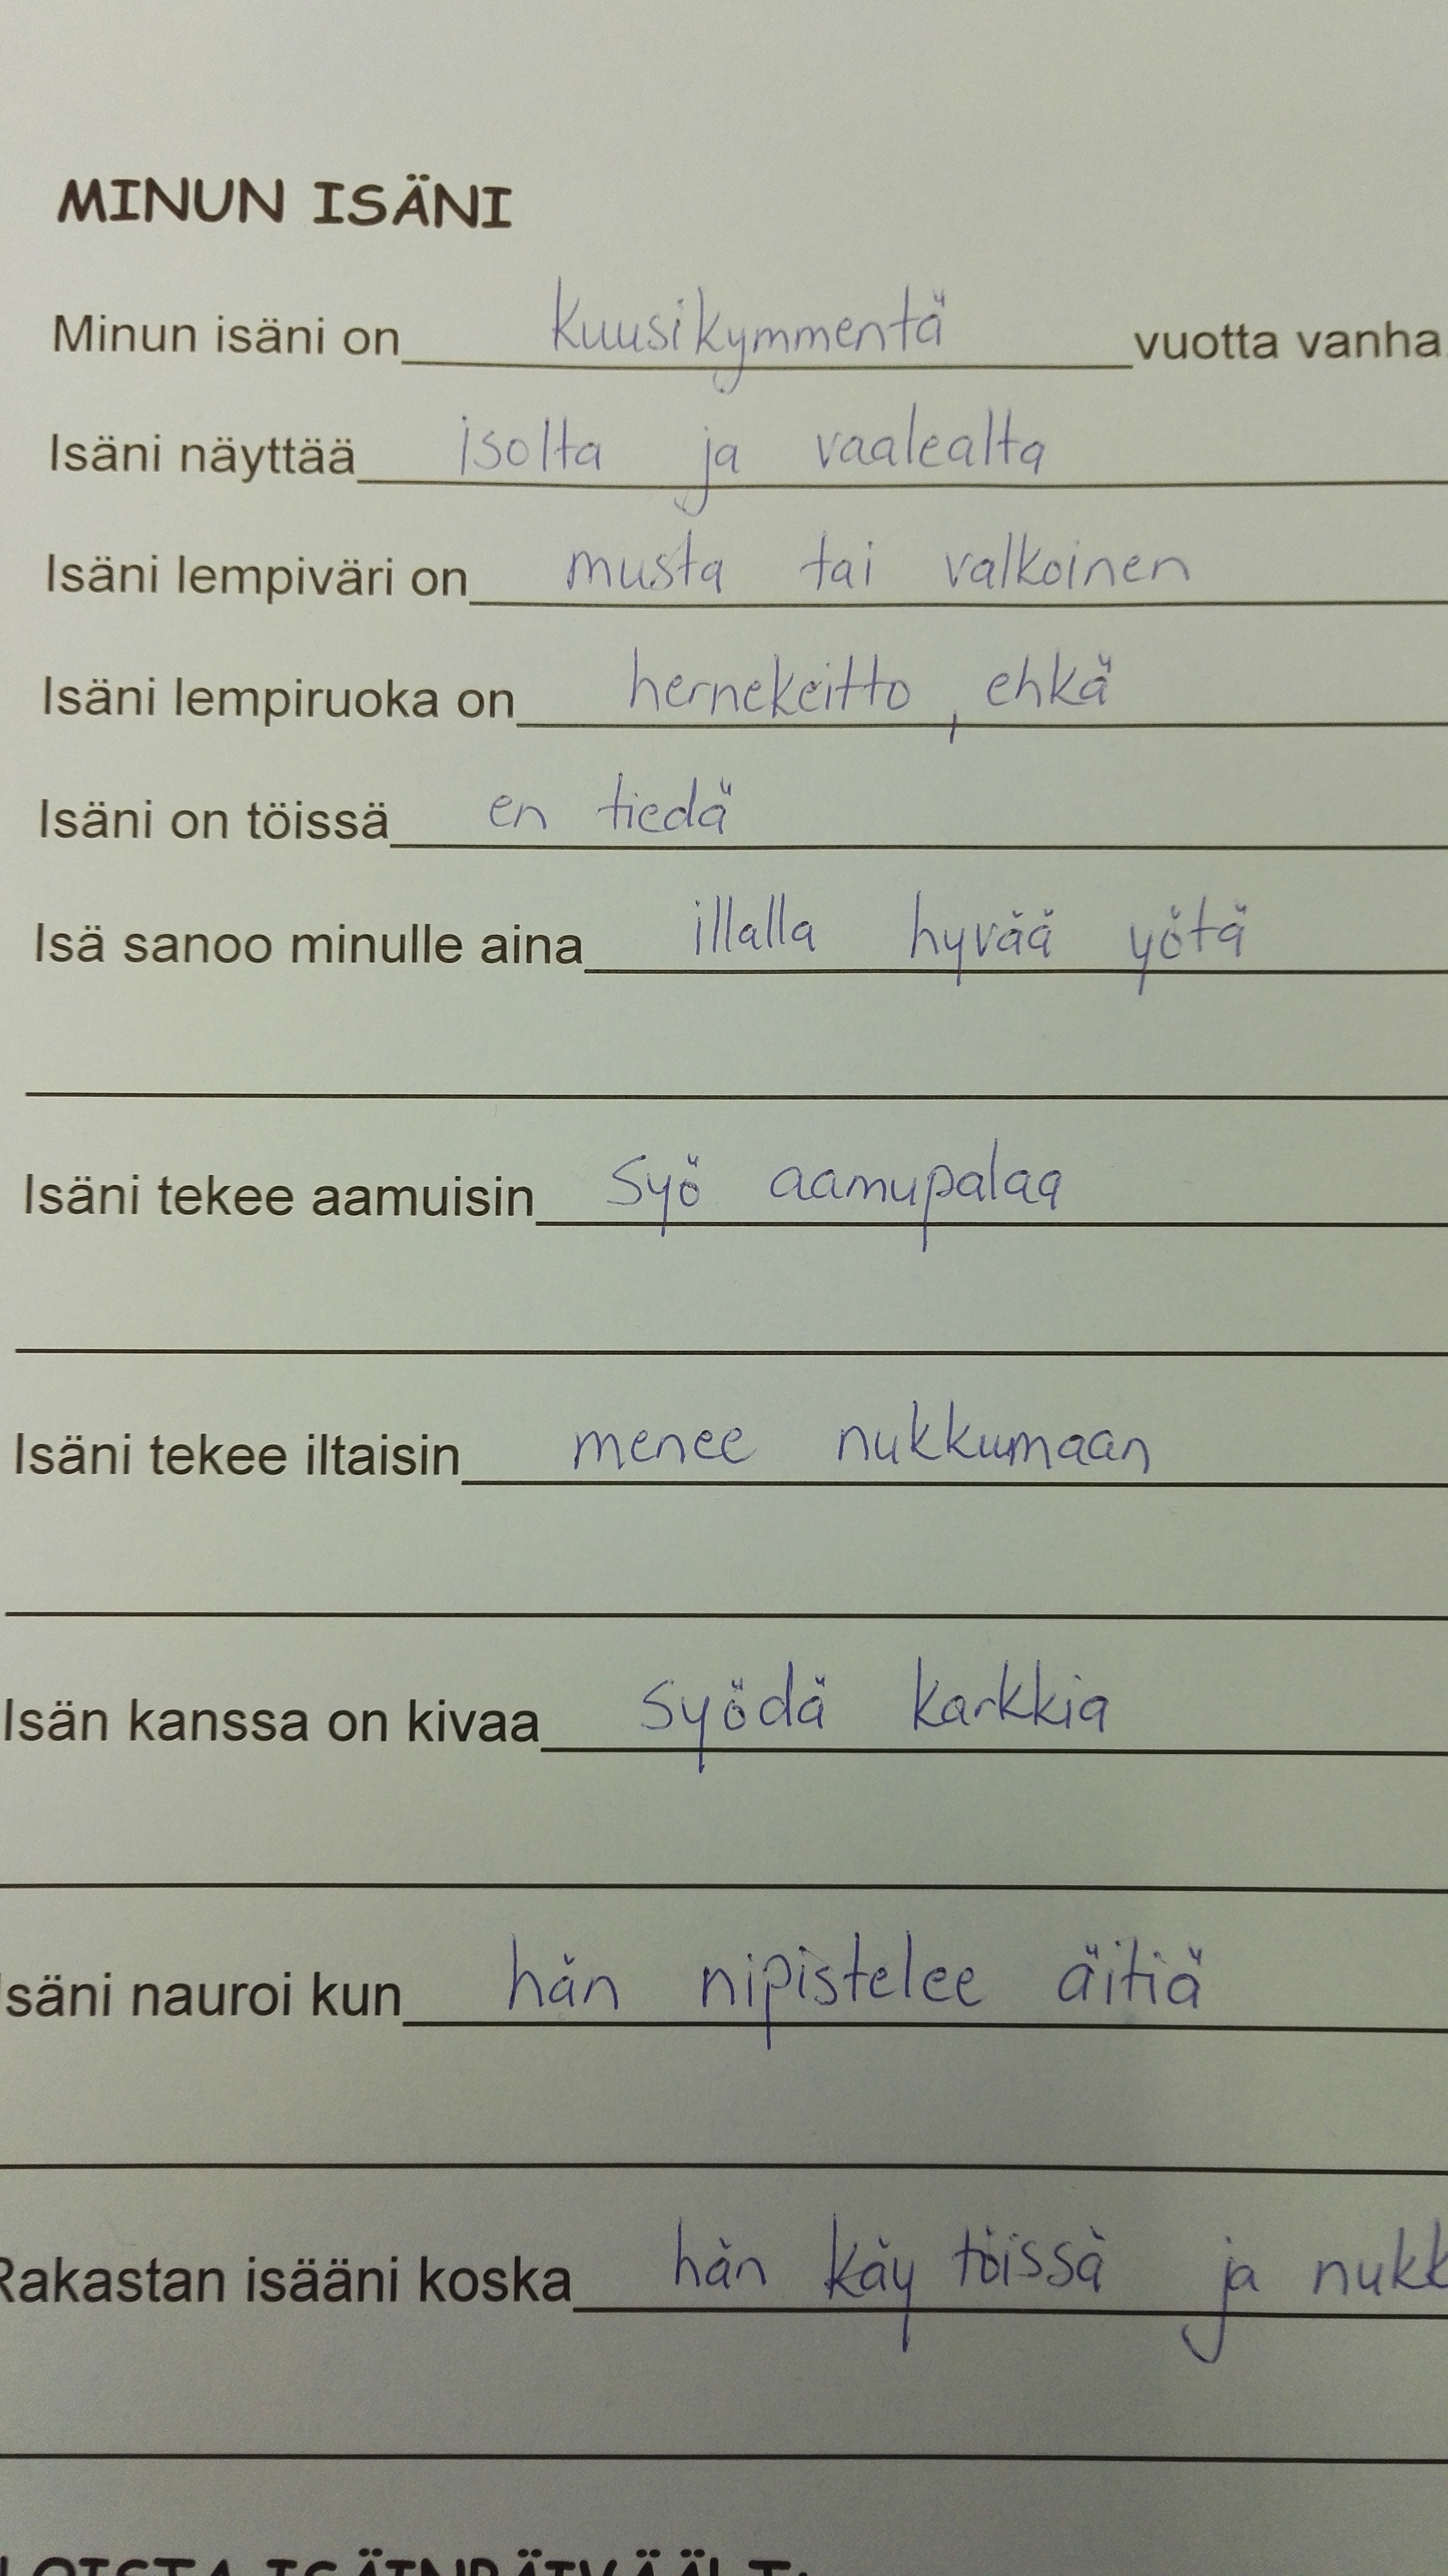 MINUN ISÄNI
Minun isäni on kuusikymmentä vuotta vanha
Isäni näyttää isolta ja vaalealta
Isäni lempiväri on musta tai valkoinen
Isäni lempiruoka on hernekeitto, ehkä
Isäni on töissä en tiedä
Isä sanoo minulle aina illalla hyvää yötä
Isäni tekee aamuisin syö aamupalaa
Isäni tekee iltaisin menee nukkumaan
Isän kanssa on kivaa syödä karkkia
Isäni nauroi kun hän nipistelee äitiä
Rakastan isääni koska hän käy töissä ja
ISÄINPÄIVÄÄ